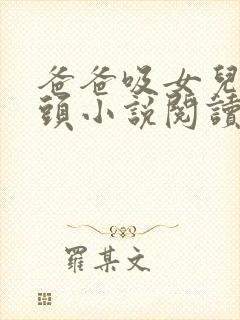 爸爸吸女兒
頭小說閱讀
羅某文